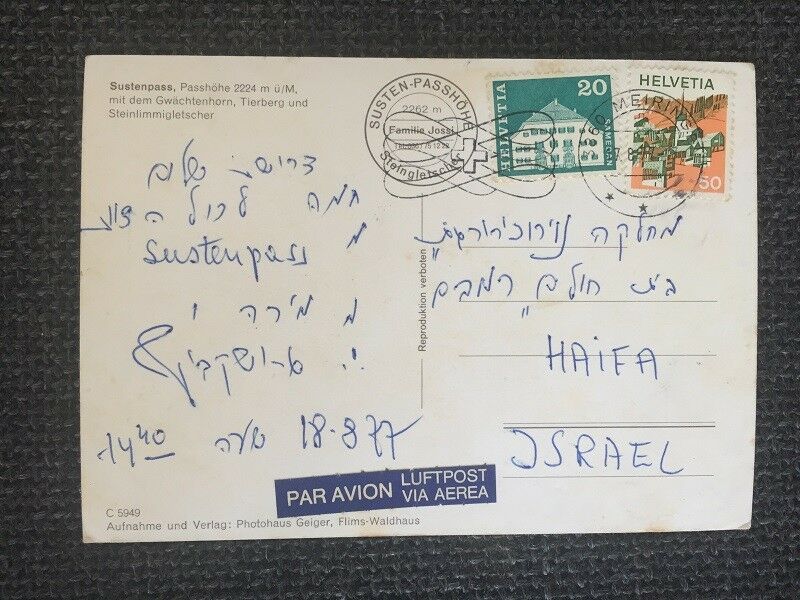 Sustenpass, Passhöhe 2224 m ü/M,
mit dem Gwächtenhorn, Tierberg und
Steinlimmigletscher
SUSTEN-PASSHÖHE
2262 m
Familie Jossi
Steingletscher
HELVETIA
20
SAMEDAN
HELVETIA
50
MEIRIN
דרישת שלום
חמה לכל הצוות
מ
Sustenpass
מ מירה ו
18-8 77 שעה 14 40
Reproduktion verboten
מחלקה נוירוכירורגית
בית חולים רמב"ם
HAIFA
ISRAEL
PAR AVION LUFTPOST
VIA AEREA
C 5949
Aufnahme und Verlag: Photohaus Geiger, Flims-Waldhaus